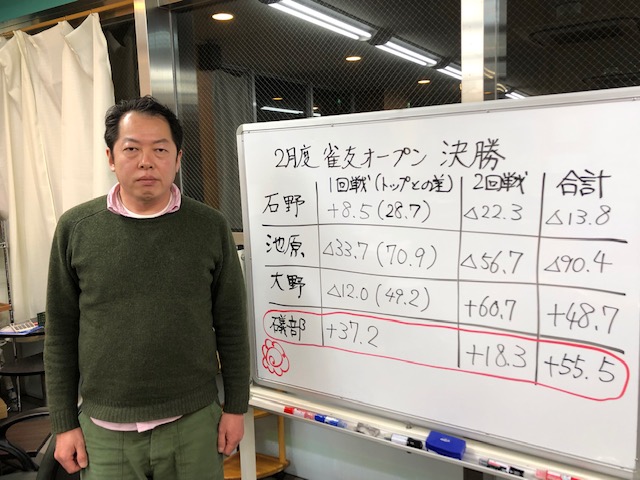 2月度 雀友オープン 決勝
1回戦(トップとの差) 2回戦 合計
石野 +8.5(28.7) △22.3 △13.8
池原 △33.7(70.9) △56.7 △90.4
大野 △12.0(49.2) +60.7 +48.7
磯部 +37.2 +18.3 +55.5